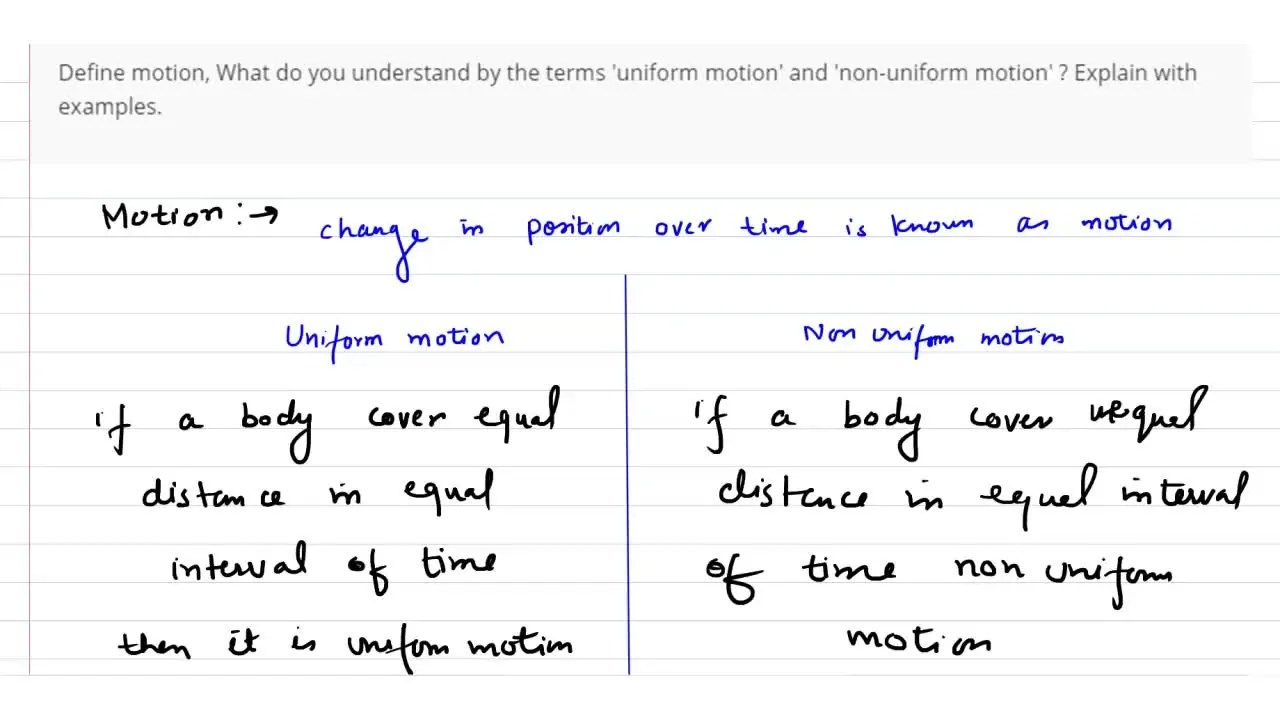 Define motion, What do you understand by the terms 'uniform motion' and 'non-uniform motion' ? Explain with
examples.
Motion :→ change in position over time is known as motion
Uniform motion
if a body cover equal
distance in equal
interval of time
then it is uniform motion
Non uniform motion
if a body cover unequal
distance in equal interval
of time non uniform
motion